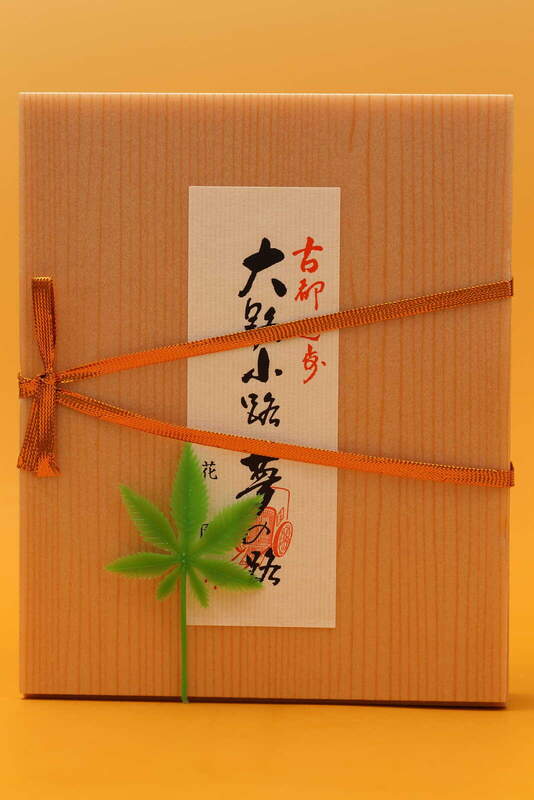 古都
大路小路夢の路
花